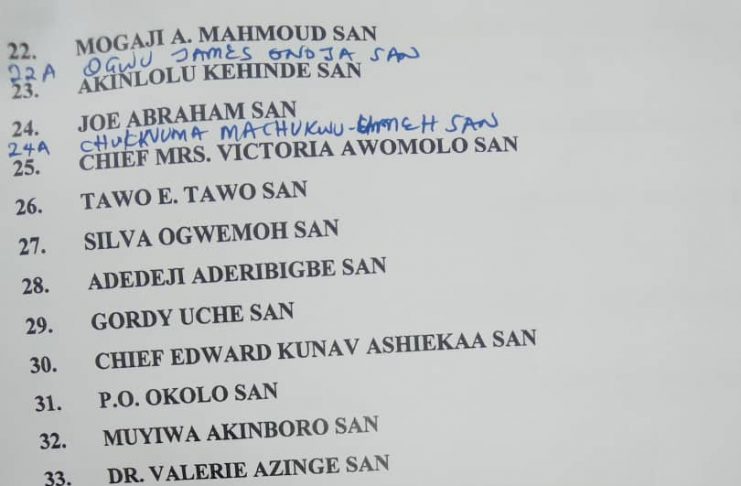 22. MOGAJI A. MAHMOUD SAN
22A OGWU JAMES ONOJA SAN
23. AKINLOLU KEHINDE SAN
24. JOE ABRAHAM SAN
24A CHUKWUMA MACHUKWU- SAN
25. CHIEF MRS. VICTORIA AWOMOLO SAN
26. TAWO E. TAWO SAN
27. SILVA OGWEMOH SAN
28. ADEDEJI ADERIBIGBE SAN
29. GORDY UCHE SAN
30. CHIEF EDWARD KUNAV ASHIEKAA SAN
31. P.O. OKOLO SAN
32. MUYIWA AKINBORO SAN
33. DR. VALERIE AZINGE SAN